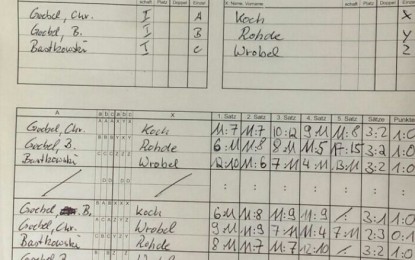 schaft Platz Doppel Einzel
Goebel, Chr. I A
Goebel, B. I B
Bartkowski I C
Name, Vorname
Koch X
Rohde Y
Wrobel Z
A X 1. Satz 2. Satz 3. Satz 4. Satz 5. Satz Sätze Punkte
Goebel, Chr. Koch 11:7 11:7 10:12 9:11 11:8 3:2 1:0
Goebel, B. Rohde 6:11 11:8 8:11 11:5 17:15 3:2 1:0
Bartkowski Wrobel 12:10 11:6 7:11 4:11 13:11 3:2 1:0
Goebel, B. Koch 6:11 11:8 11:9 11:9 3:1 1:0
Goebel, Chr. Wrobel 9:11 11:9 7:11 11:4 7:11 2:3 0:1
Bartkowski Rohde 8:11 11:7 11:7 12:10 1:0